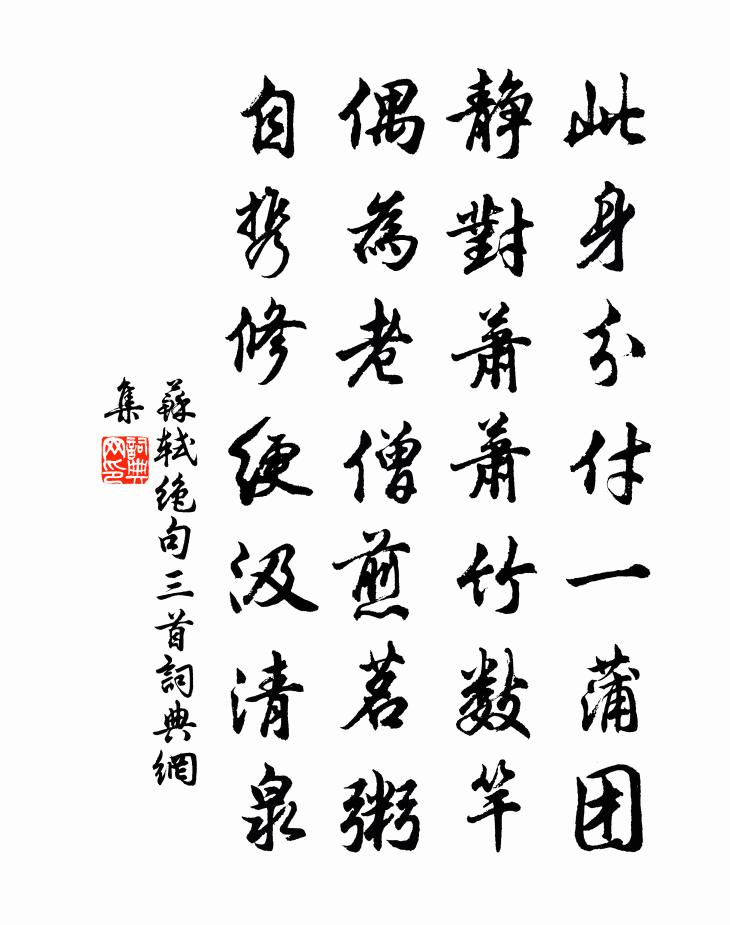 此身分付一蒲团
静對蕭蕭竹數竿
偶為老僧煎茗粥
自携修綆汲清泉
蘇軾絶句三首詞典網
集
詞典網印